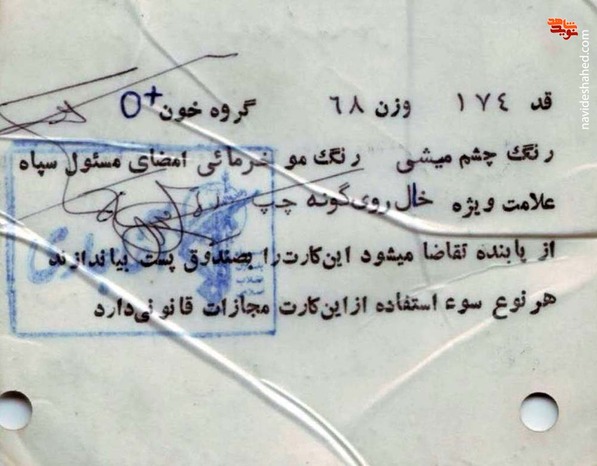 نوید شاهد
navideshahed.com
قد ١٧٤ وزن ٦٨ گروه خون O+
رنگ چشم میشی رنگ مو خرمائی امضای مسئول سپاه
علامت ویژه خال روی گونه چپ
از یابنده تقاضا میشود این کارت را بصندوق پست بیاندازند
هر نوع سوء استفاده از این کارت مجازات قانونی دارد